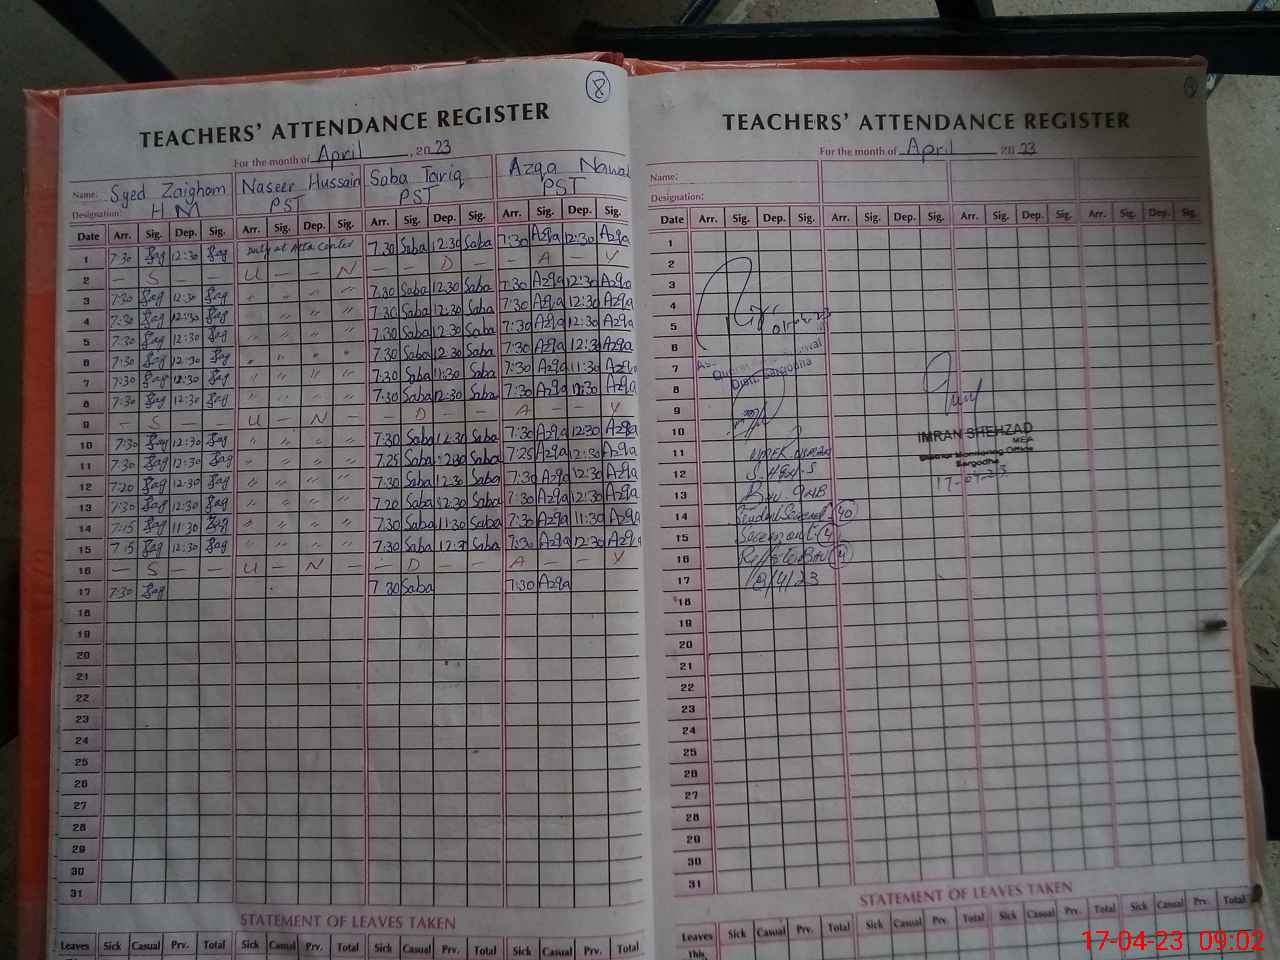 8
TEACHERS' ATTENDANCE REGISTER
For the month of April, 2023
Name: Syed Zaigham Naseer Hussain Saba Tariq Azqa Nawal
Designation: HM PST PST PST
Date Arr. Sig. Dep. Sig. Arr. Sig. Dep. Sig. Arr. Sig. Dep. Sig. Arr. Sig. Dep. Sig.
1 7:30 12:30 7.30 Saba 12:30 Saba 7:30 Azqa 12:30 Azqa
2 — S — — U — — N — — D — — A — Y
3 7:30 12:30 " " " " 7.30 Saba 12.30 Saba 7:30 Azqa 12:30 Azqa
4 7:30 12:30 " " " " 7:30 Saba 12:30 Saba 7:30 Azqa 12:30 Azqa
5 7:30 12:30 " " " " 7:30 Saba 12:30 Saba 7:30 Azqa 12:30 Azqa
6 7:30 12:30 " " " " 7:30 Saba 12:30 Saba 7:30 Azqa 12:30 Azqa
7 7:30 " " " " 7:30 Saba 11:30 Saba 7:30 Azqa 11:30 Azqa
8 7:30 12:30 " " " " 7:30 Saba 12:30 Saba 7:30 Azqa Azqa
9 — S — — U — N — — D — — A — Y
10 7:30 12:30 " " " " 7:30 Saba 12:30 Saba 7:30 Azqa 12:30 Azqa
11 7:30 12:30 " " " " 7:25 Saba Saba 7:25 Azqa 12:30 Azqa
12 7:20 12:30 " " " " 7:30 Saba 12:30 Saba 7:30 Azqa 12:30 Azqa
13 7:30 12:30 " " " " 7:20 Saba 12:30 Saba 7:30 Azqa 12:30 Azqa
14 7:15 11:30 " " " " 7:30 Saba 11:30 Saba 7:30 Azqa 11:30 Azqa
15 7:15 12:30 " " " " 7:30 Saba Saba 7:30 Azqa 12:30 Azqa
16 — S — — U — N — — D — — A — Y
17 7:30 7:30 Saba 7:30 Azqa
18
19
20
21
22
23
24
25
26
27
28
29
30
31
STATEMENT OF LEAVES TAKEN
Leaves Sick Casual Prv. Total Sick Casual Prv. Total Sick Casual Prv. Total Sick Casual Prv. Total
TEACHERS' ATTENDANCE REGISTER
For the month of April 2023
Name:
Designation:
Date Arr. Sig. Dep. Sig. Arr. Sig. Dep. Sig. Arr. Sig. Dep. Sig. Arr. Sig. Dep. Sig.
1
2
3
4
5
6
7
8
9
10
11
12
13
14 40
15
16
17
18
19
20
21
22
23
24
25
26
27
28
29
30
31
Sargodha
IMRAN SHEHZAD
MEA
District Monitoring Office
Sargodha
STATEMENT OF LEAVES TAKEN
Leaves Sick Casual Prv. Total Sick Casual Prv. Total Sick Casual Prv. Total Sick Casual Prv. Total
This
17-04-23 09:02